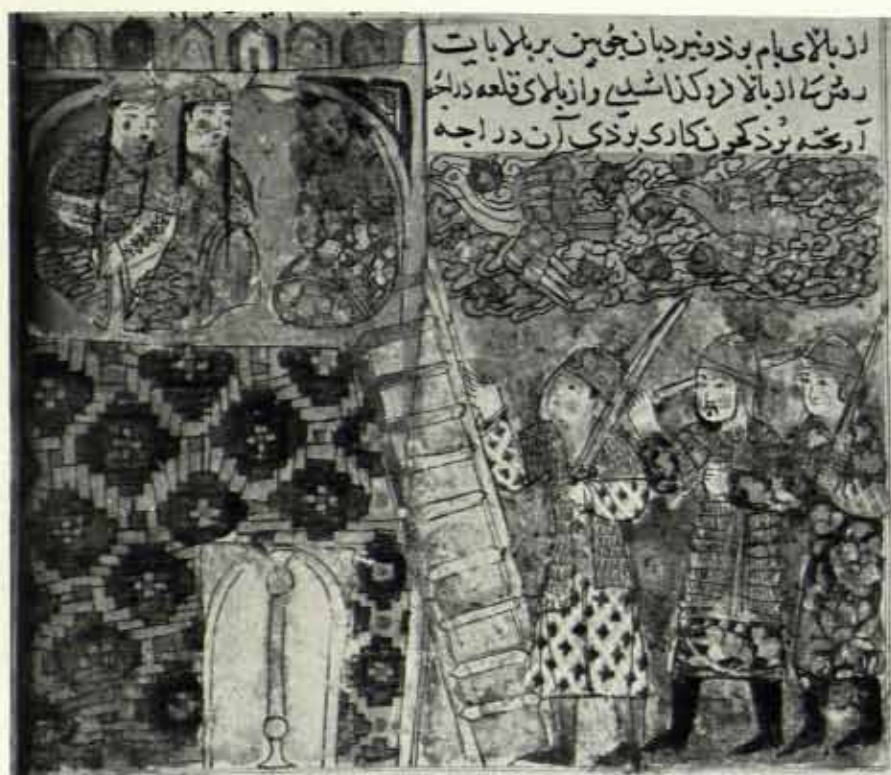 از بالای بام بوذ و نیردبان جوبین بر بالا بایت
از بالا فرو کذاشتی و از بالای قلعه در
آویخته بوذ کجون کاری بوذی آن در